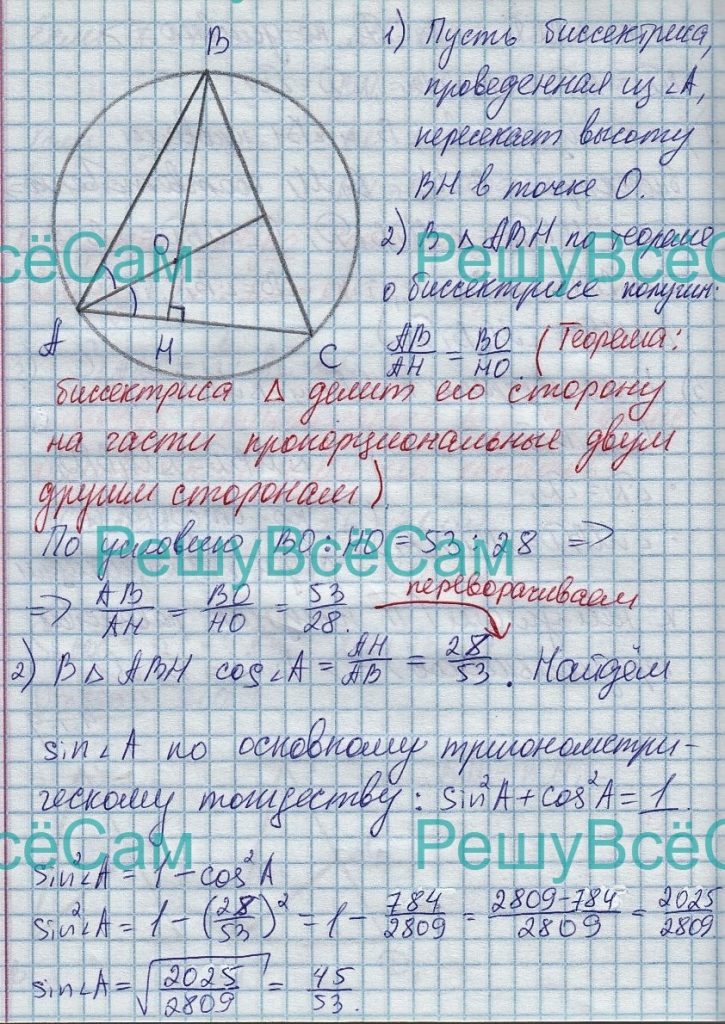 B
1) Пусть биссектриса,
проведенная из ∠A,
пересекает высоту
BH в точке O.
2) В △ ABH по теореме
о биссектрисе получим:
O
A
H
C
AB/AH = BO/HO. (Теорема:
биссектриса △ делит его сторону
на части пропорциональные двум
другим сторонам)
По условию BO:HO = 53:28 =>
=> AB/AH = BO/HO = 53/28.
переворачиваем
2) В △ ABH cos∠A = AH/AB = 28/53. Найдём
sin∠A по основному тригонометри-
ческому тождеству: sin²A + cos²A = 1.
sin²∠A = 1 - cos²A
sin²∠A = 1 - (28/53)² = 1 - 784/2809 = 2809-784/2809 = 2025/2809
sin∠A = √2025/2809 = 45/53.
РешуВсёСам
РешуВсёСам
РешуВсёСам
сёСам
РешуВсёСам